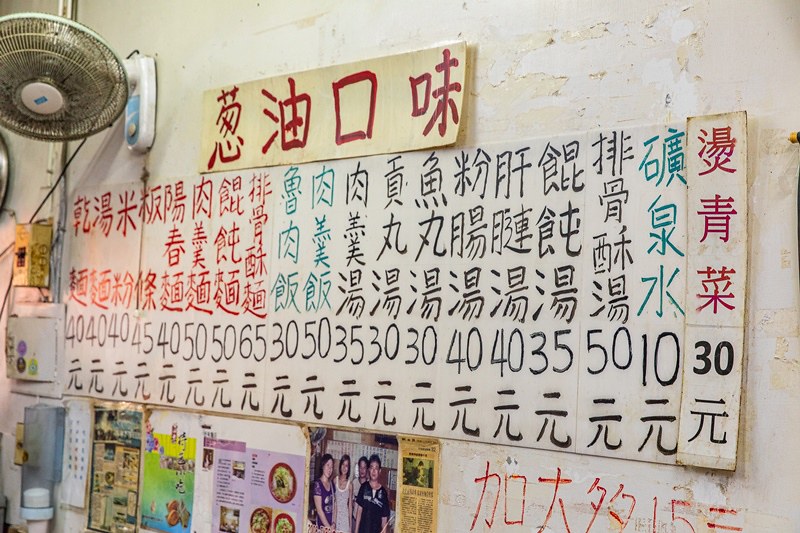 葱油口味
乾麵40元
湯麵40元
米粉40元
粄條45元
陽春麵40元
肉羹麵50元
餛飩麵50元
排骨酥麵65元
魯肉飯30元
肉羹飯50元
肉羹湯35元
貢丸湯30元
魚丸湯30元
粉腸湯40元
肝腱湯40元
餛飩湯35元
排骨酥湯50元
礦泉水10元
燙青菜30元
加大多15元